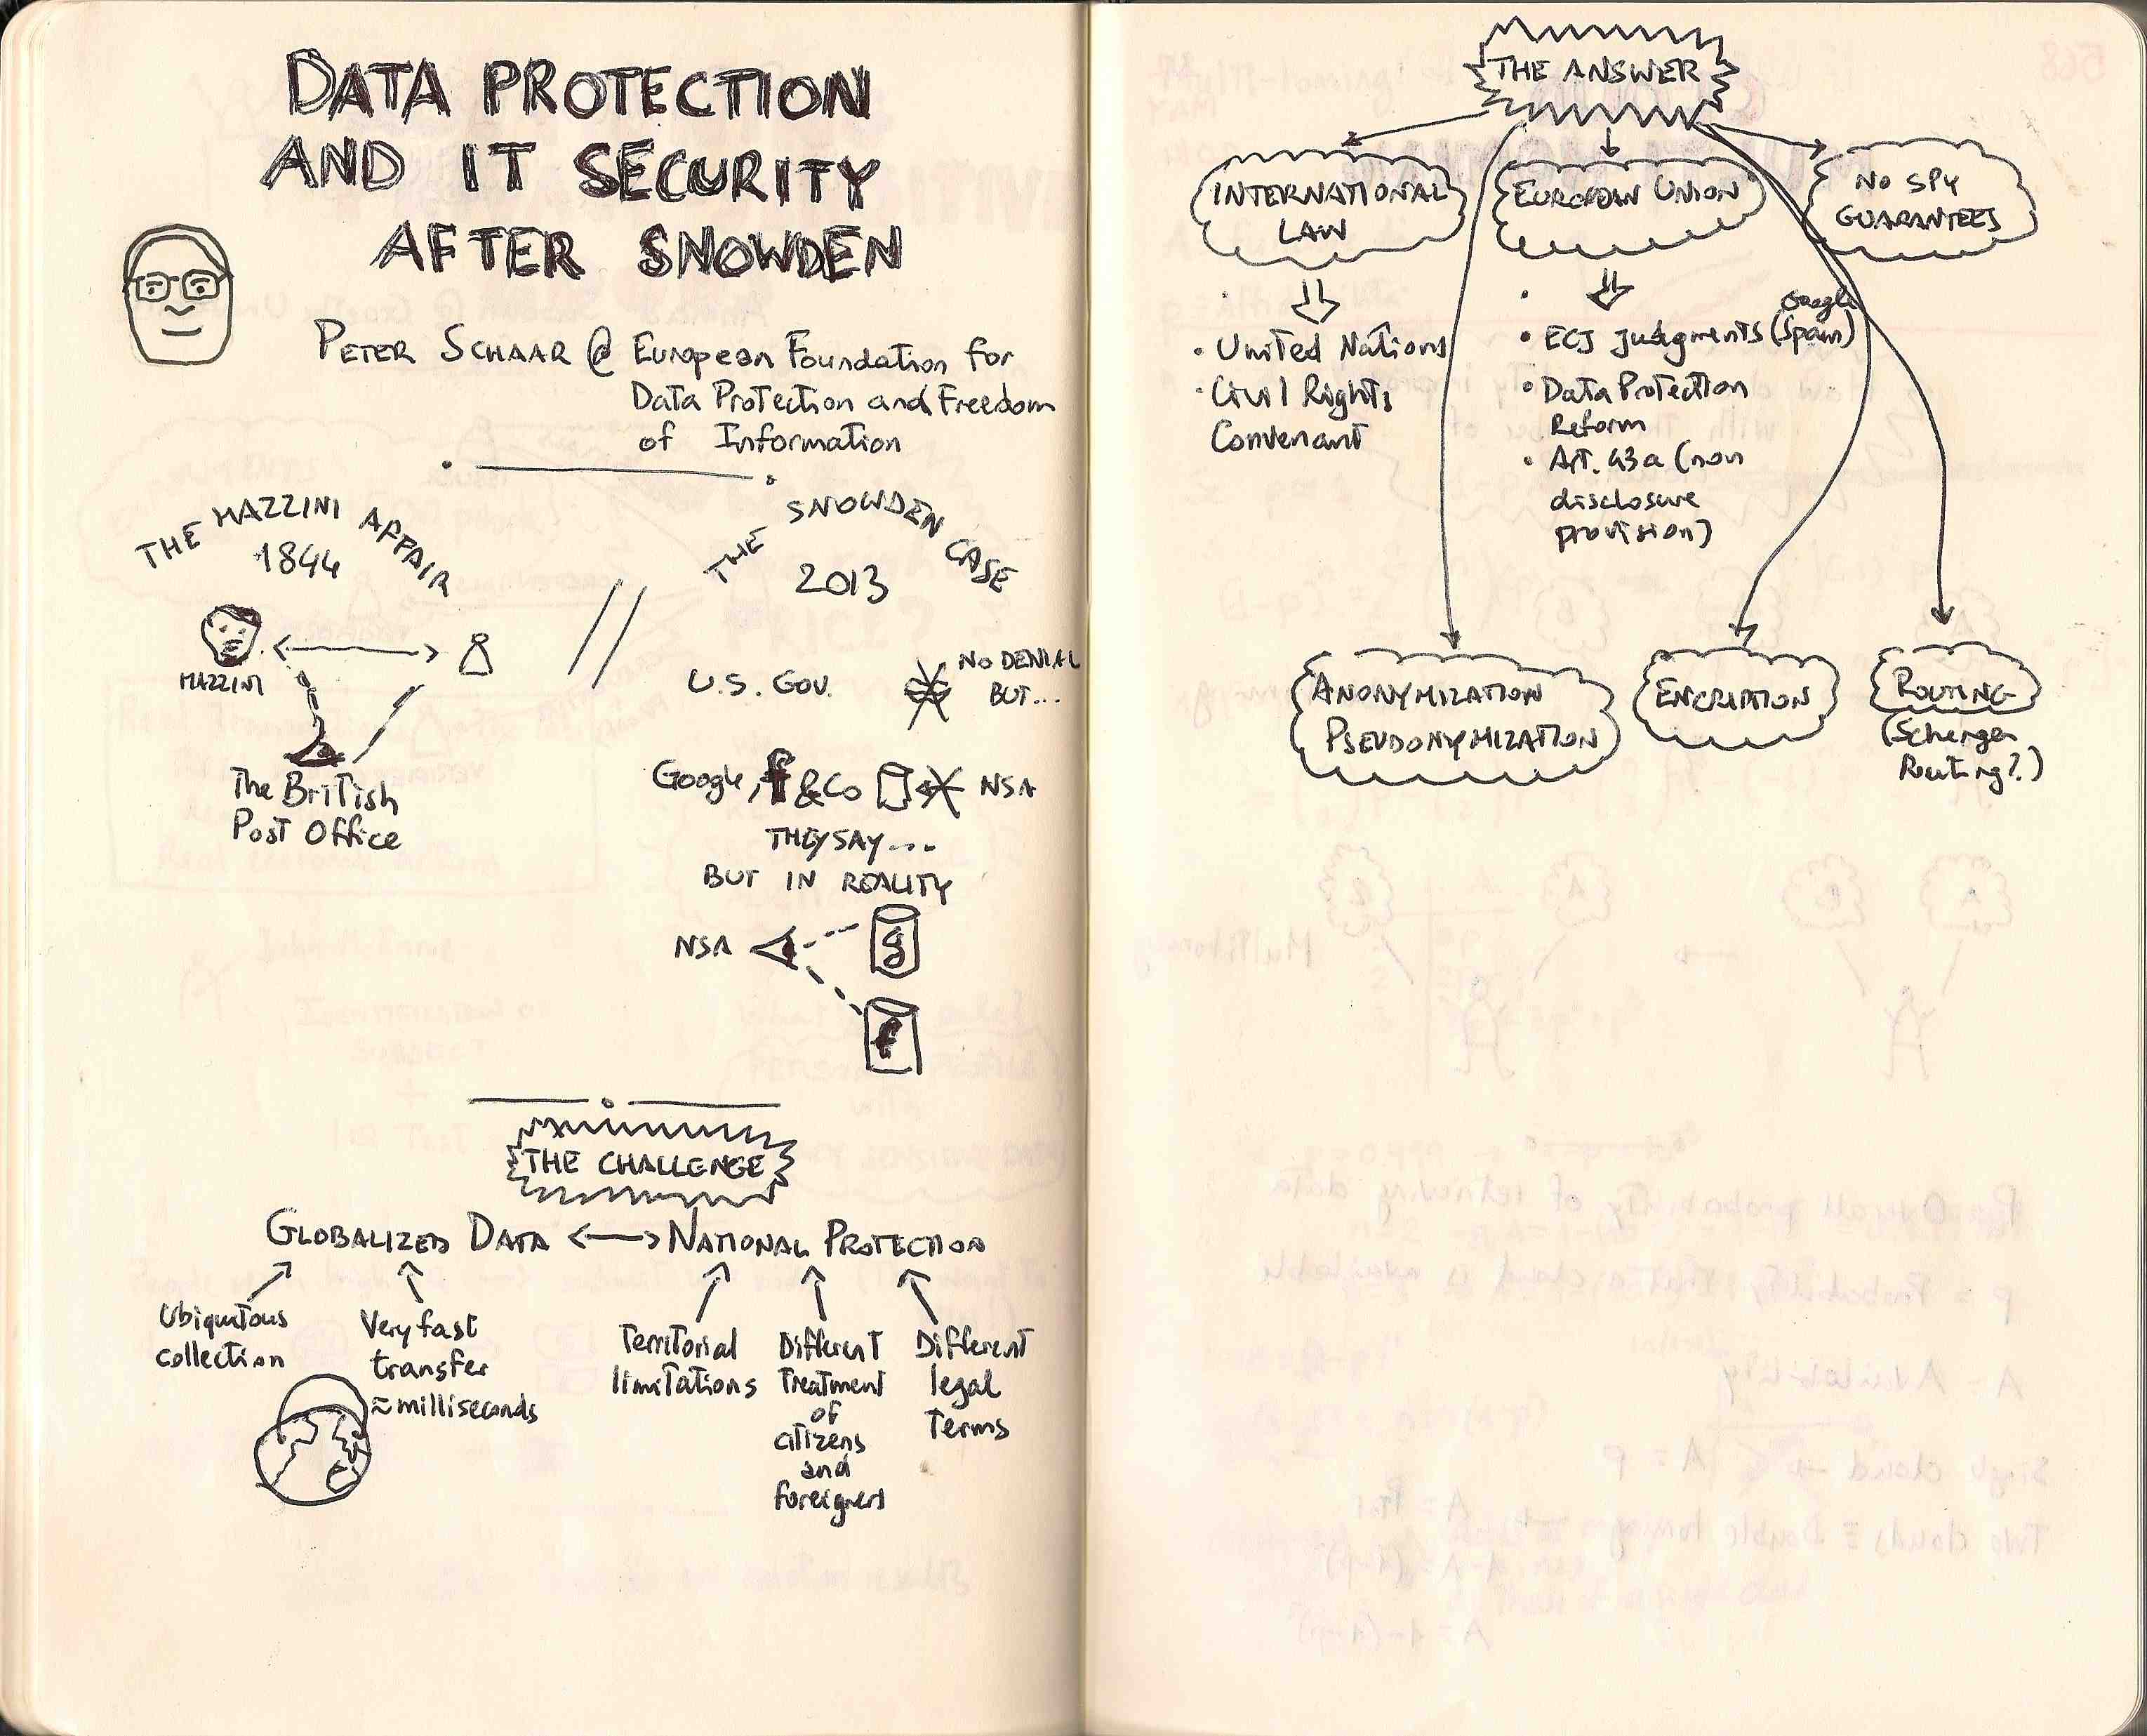 DATA PROTECTION
AND IT SECURITY
AFTER SNOWDEN
PETER SCHAAR @ European Foundation for
Data Protection and Freedom
of Information
THE MAZZINI AFFAIR
1844
MAZZINI
The British
Post Office
THE SNOWDEN CASE
2013
U.S. GOV.
NO DENIAL
BUT...
Google, f & Co
NSA
THEY SAY...
BUT IN REALITY
NSA
g
f
THE CHALLENGE
GLOBALIZED DATA <—> NATIONAL PROTECTION
Ubiquitous
collection
Very fast
transfer
≈ milliseconds
Territorial
limitations
Different
Treatment
of
citizens
and
foreigners
Different
legal
Terms
THE ANSWER
INTERNATIONAL
LAW
• United Nations
• Civil Rights
Convenant
EUROPEAN UNION
• ECJ judgments (Google Spain)
• Data Protection
Reform
• Art. 43a (non
disclosure
provision)
NO SPY
GUARANTEES
ANONYMIZATION
PSEUDONYMIZATION
ENCRIPTION
ROUTING
(Schengen
Routing?)